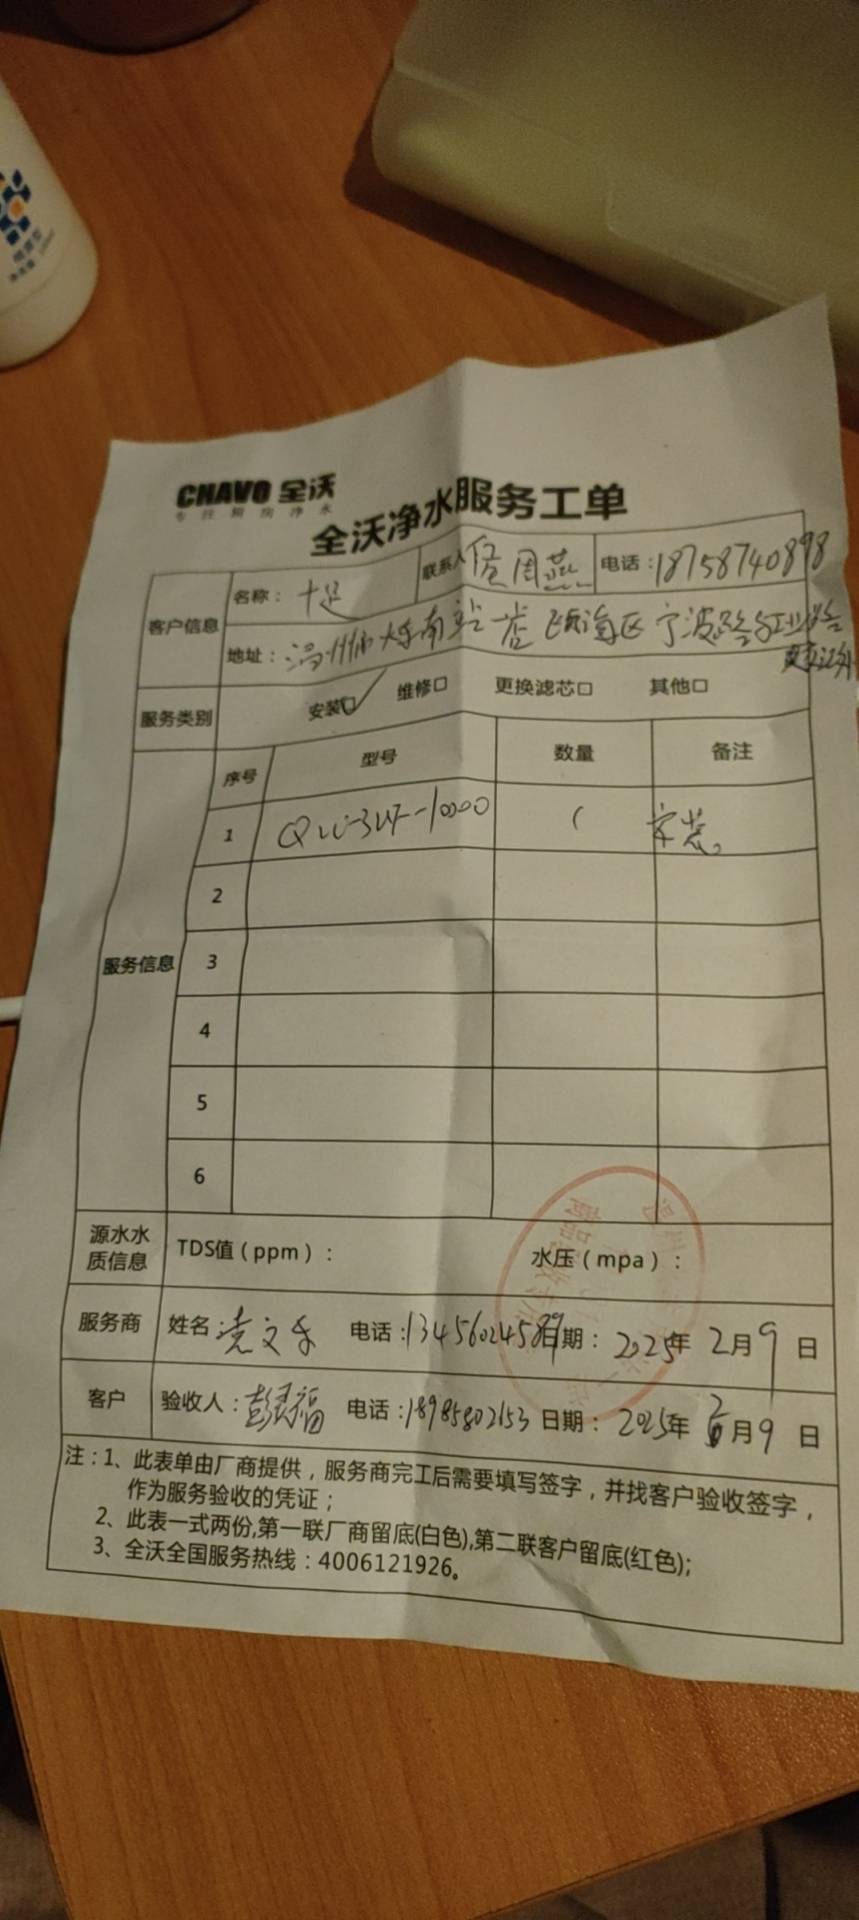 CHAVO 全沃
专注厨房净水
全沃净水服务工单
客户信息 名称：十足 联系人 周燕 电话：18758740898
地址：温州 火车南站一店 瓯海区 宁波路与工业路
交汇处
服务类别 安装☑ 维修□ 更换滤芯□ 其他□
服务信息 序号 型号 数量 备注
1 -10000 1 安装
2
3
4
5
6
源水水质信息 TDS值（ppm）： 水压（mpa）：
服务商 姓名 文 电话：13456024589 日期：2025年2月9日
客户 验收人：彭 福 电话：18985802153 日期：2025年2月9日
注：1、此表单由厂商提供，服务商完工后需要填写签字，并找客户验收签字，
作为服务验收的凭证；
2、此表一式两份,第一联厂商留底(白色),第二联客户留底(红色);
3、全沃全国服务热线：4006121926。